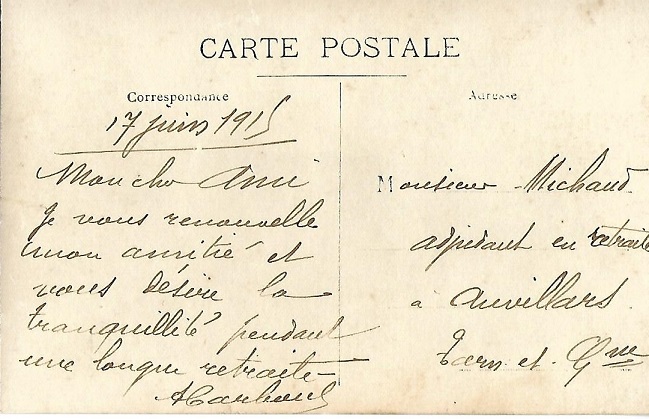 CARTE POSTALE
Correspondance
17 juin 1915
Mon cher Ami
Je vous renouvelle
mon amitié et
vous désire la
tranquillité pendant
une longue retraite
Adresse
Monsieur Michaud
adjudant en retraite
à Auvillars
Tarn et Gne